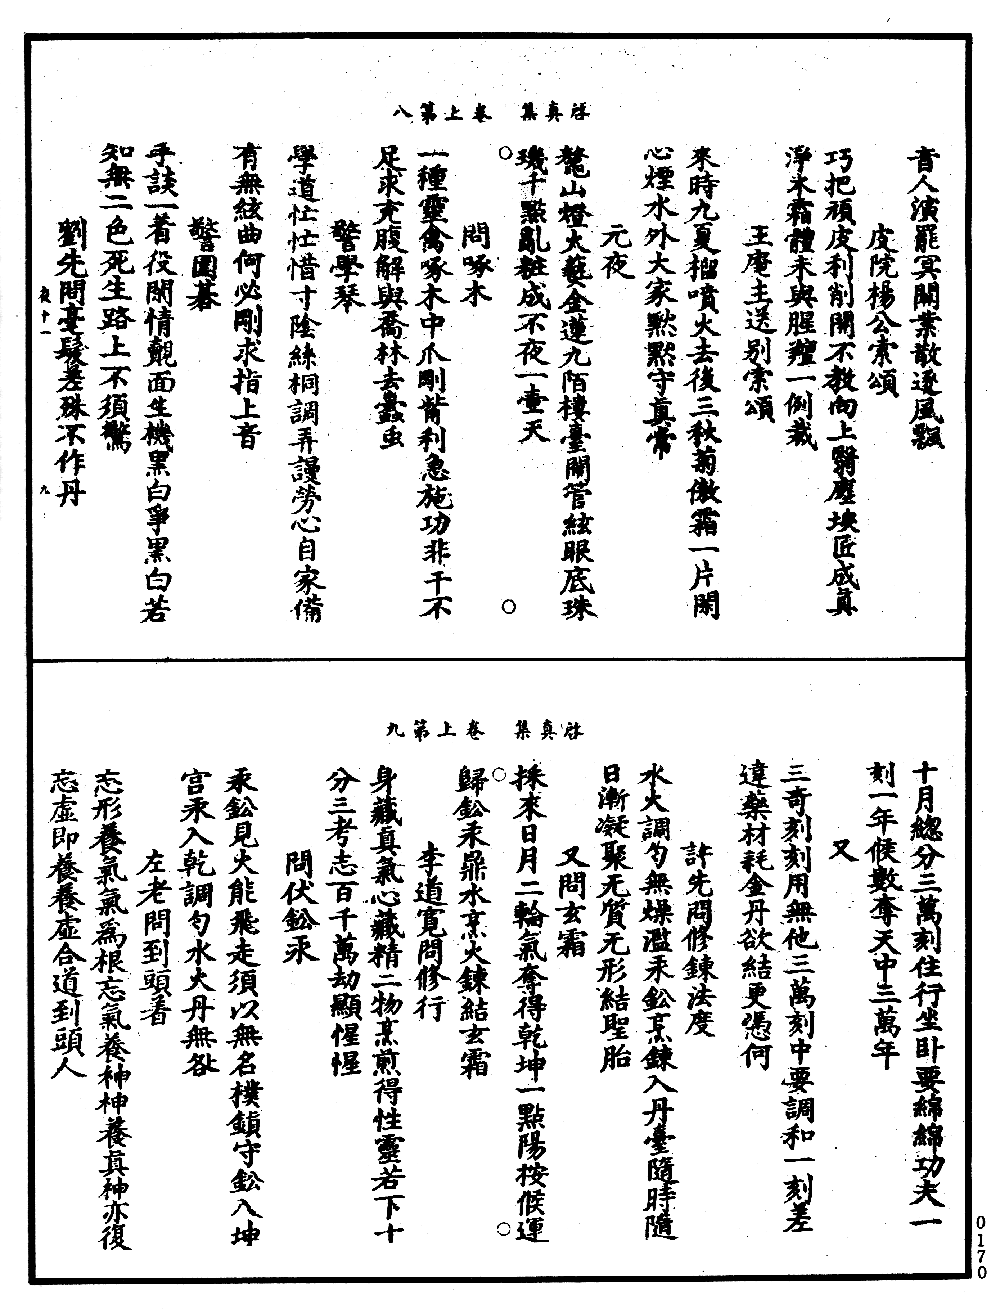 啓真集　卷上第八
音人演罷冥關業散逐風飄
皮院楊公索頌
巧把頑皮利削開不教向上翳塵埃匠成真
淨氷霜體未與腥羶一例裁
王庵主送別索頌
來時九夏榴噴火去後三秋菊傲霜一片閑
心煙水外大家默默守真常
元夜
鼇山燈火蓺金蓮九陌樓臺鬧管絃眼底珠
璣千點亂粧成不夜一壷天
問啄木
一種靈禽啄木中爪剛觜利急施功非干不
足求充腹解與喬林去蠹虫
警學琴
學道忙忙惜寸陰絲桐調弄謾勞心自家備
有無絃曲何必剛求指上音
警圍棊
手談一着役閑情覿面生機黑白爭黑白若
知無二色死生路上不須驚
劉先問毫髮差殊不作丹
夜十一　九
啓真集　卷上第九
十月總分三萬刻住行坐卧要綿綿功夫一
刻一年候數奪天中三萬年
又
三奇刻刻用無他三萬刻中要調和一刻差
違藥材耗金丹欲結更憑何
許先問修鍊法度
水火調勻無燥濫汞鈆烹鍊入丹臺隨時隨
日漸凝聚无質无形結聖胎
又問玄霜
採來日月二輪氣奪得乾坤一點陽按候運
歸鈆汞鼎水烹火鍊結玄霜
李道寬問修行
身藏真氣心藏精二物烹煎得性靈若下十
分三考志百千萬劫顯惺惺
問伏鈆汞
汞鈆見火能飛走須以無名樸鎮守鈆入坤
宮汞入乾調勻水火丹無咎
左老問到頭着
忘形養氣氣爲根忘氣養神神養真神亦復
忘虛即養養虛合道到頭人
0170